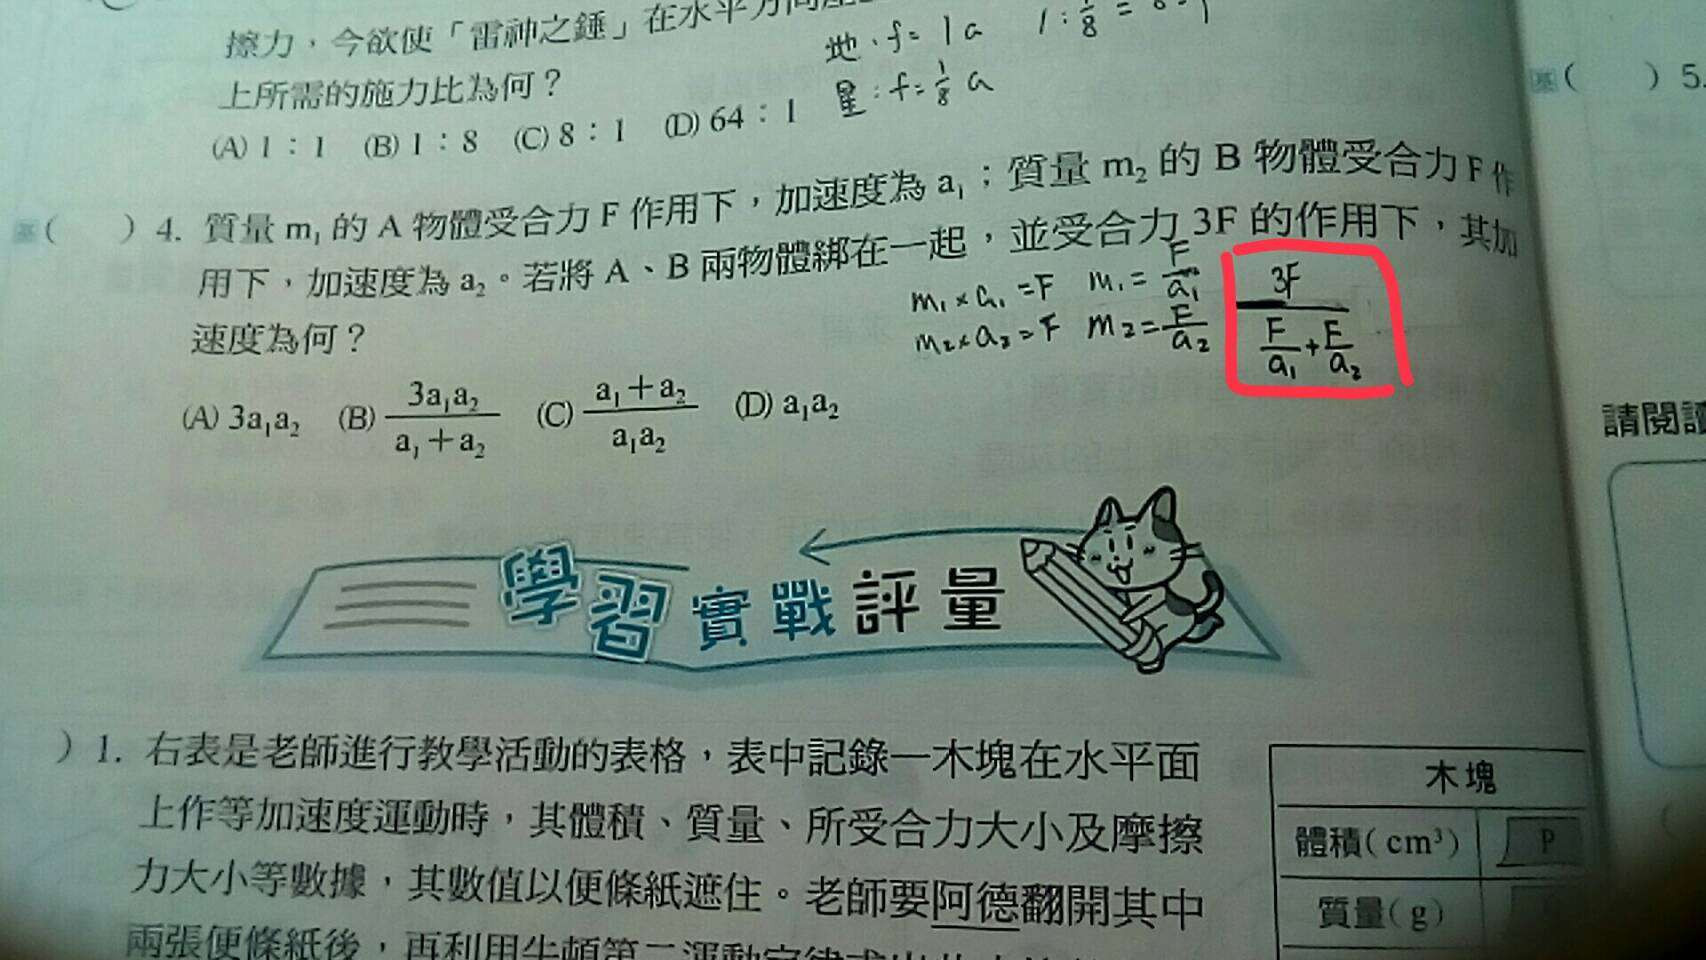 擦力，今欲使「雷神之錘」在水平方向
上所需的施力比為何？
(A) 1：1 (B) 1：8 (C) 8：1 (D) 64：1
地：f= 1a
星：f=1/8 a
( ) 4. 質量 m₁ 的 A 物體受合力 F 作用下，加速度為 a₁；質量 m₂ 的 B 物體受合力 F 作
用下，加速度為 a₂。若將 A、B 兩物體綁在一起，並受合力 3F 的作用下，其加
速度為何？
m₁×a₁=F m₁=F/a₁
m₂×a₂=F m₂=F/a₂
3F
F/a₁+F/a₂
(A) 3a₁a₂ (B) 3a₁a₂/a₁＋a₂ (C) a₁＋a₂/a₁a₂ (D) a₁a₂
學習實戰評量
) 1. 右表是老師進行教學活動的表格，表中記錄一木塊在水平面
上作等加速度運動時，其體積、質量、所受合力大小及摩擦
力大小等數據，其數值以便條紙遮住。老師要阿德翻開其中
兩張便條紙後，再利用牛頓第二運動定律求出
木塊
體積(cm³) P
質量(g)
( ) 5.
請閱讀